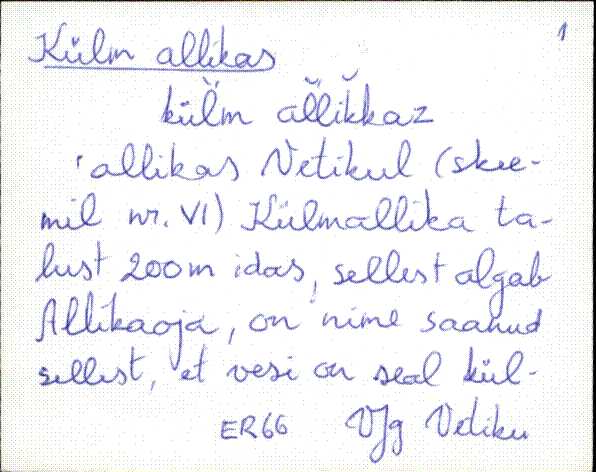 1
Külm allikas
külm ällikkaz
allikas Vetikul (skee-
mil nr. VI) Külmallika ta-
lust 200m idas, sellest algab
Allikaoja, on nime saanud
sellest, et vesi on seal kül-
ER66 VJg Vetiku